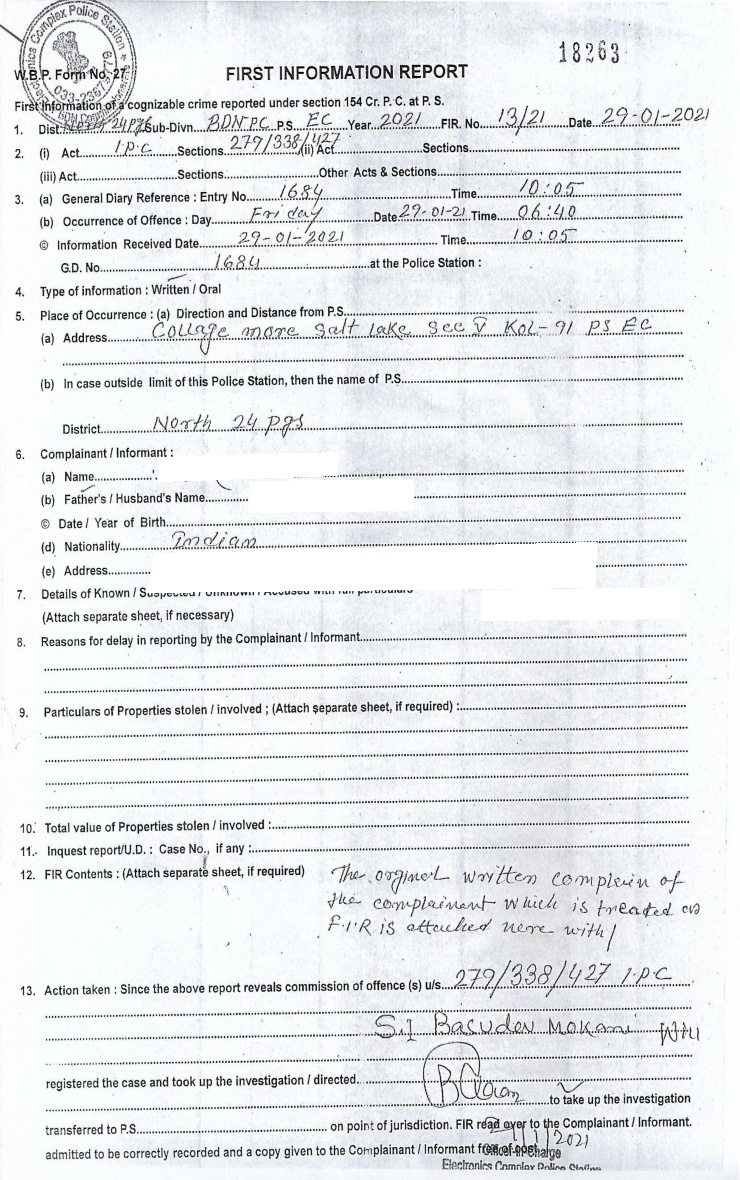 Electronics Complex Police Station
033-2367
18263
W.B.P. Form No. 27
FIRST INFORMATION REPORT
First Information of a cognizable crime reported under section 154 Cr. P. C. at P. S.
1. Dist. North 24 Pgs Sub-Divn. BDNPC P.S. EC Year 2021 FIR. No. 13/21 Date 29-01-2021
2. (i) Act I.P.C Sections 279/338/427 (ii) Act Sections
(iii) Act Sections Other Acts & Sections
3. (a) General Diary Reference : Entry No. 1684 Time 10:05
(b) Occurrence of Offence : Day Friday Date 29-01-21 Time 06:40
© Information Received Date 29-01-2021 Time 10:05
G.D. No. 1684 at the Police Station :
4. Type of information : Written / Oral
5. Place of Occurrence : (a) Direction and Distance from P.S.
(a) Address Collage more Salt Lake Sec V Kol-91 PS EC
(b) In case outside limit of this Police Station, then the name of P.S.
District North 24 pgs
6. Complainant / Informant :
(a) Name
(b) Father's / Husband's Name
© Date / Year of Birth
(d) Nationality Indian
(e) Address
7. Details of Known / Suspected / Unknown / Accused with full particulars
(Attach separate sheet, if necessary)
8. Reasons for delay in reporting by the Complainant / Informant
9. Particulars of Properties stolen / involved ; (Attach separate sheet, if required) :
10. Total value of Properties stolen / involved :
11. Inquest report/U.D. : Case No., if any :
12. FIR Contents : (Attach separate sheet, if required) The orginal written complain of
the complainant which is treated as
F.I.R is attached here with/
13. Action taken : Since the above report reveals commission of offence (s) u/s. 279/338/427 I.P.C
S.I Basudev
registered the case and took up the investigation / directed.
to take up the investigation
transferred to P.S. on point of jurisdiction. FIR read over to the Complainant / Informant.
1/2021
admitted to be correctly recorded and a copy given to the Complainant / Informant free of cost.
Officer-in-Charge
Electronics Complex Police Station